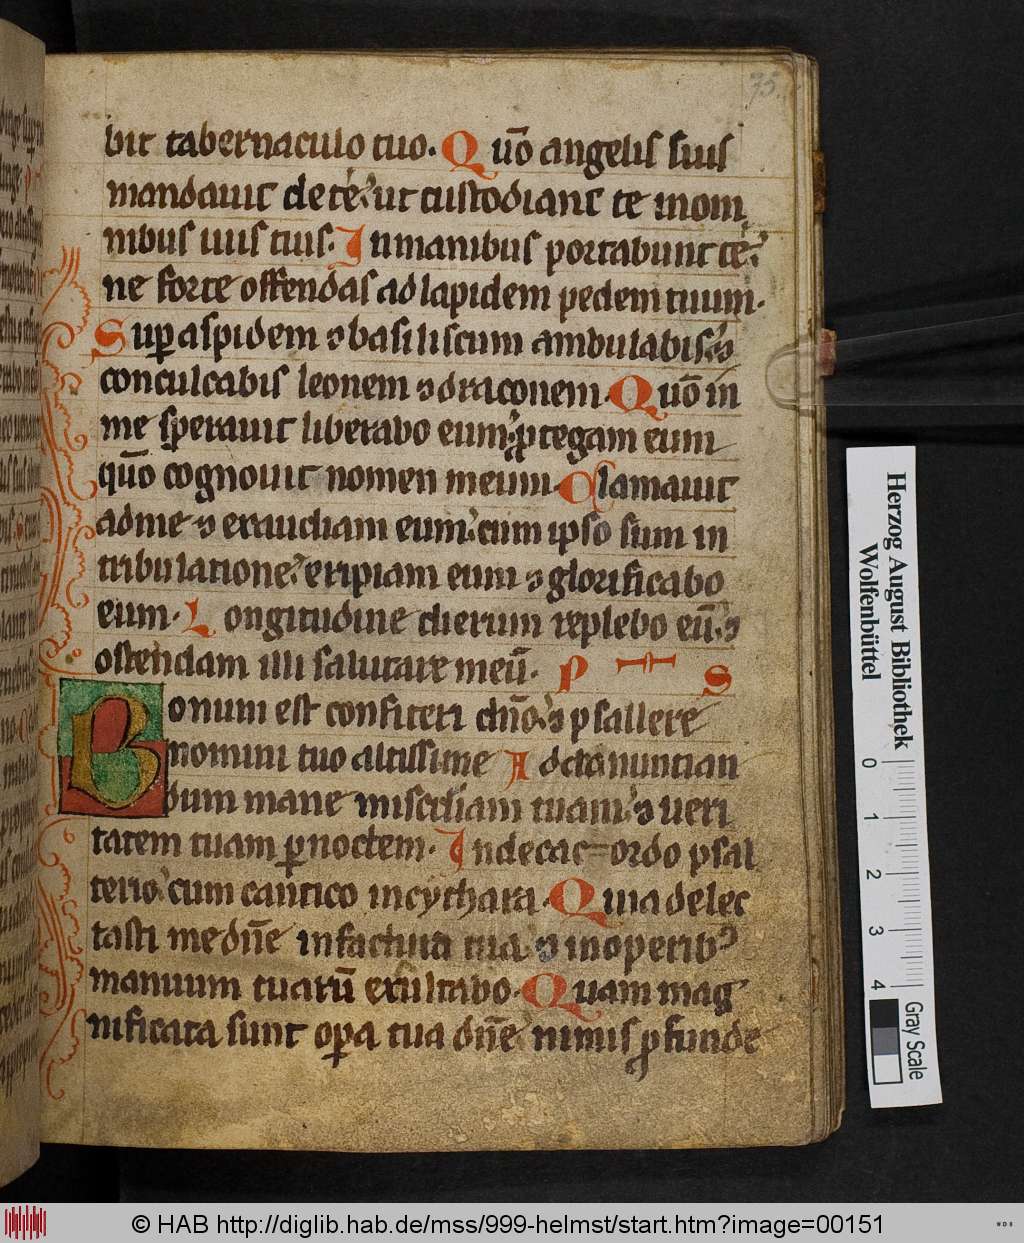 75
bit tabernaculo tuo. Quō angelis suis
mandauit de te: ut custodiant te in om
nibus uiis tuis. In manibus portabunt te:
ne forte offendas ad lapidem pedem tuum.
Suꝑ aspidem ⁊ basiliscum ambulabis: ⁊
conculcabis leonem ⁊ draconem. Quō in
me sperauit liberabo eum: ꝓtegam eum
quō cognouit nomen meum. Clamauit
ad me ⁊ exaudiam eum: cum ipso sum in
tribulatione: eripiam eum ⁊ glorificabo
eum. Longitudine dierum replebo eū: ⁊
ostendam illi salutare meū. P S
Bonum est confiteri dn̄o: ⁊ psallere
nomini tuo altissime Ad annuntian
dum mane misc̄diam tuam: ⁊ ueri
tatem tuam ꝑ noctem. In decacordo psal
terio: cum cantico in cythara. Quia delec
tasti me dn̄e in factura tua: ⁊ in operibꝰ
manuum tuarū exultabo. Quam mag
nificata sunt oꝑa tua dn̄e nimis ꝓfunde
Herzog August Bibliothek
Wolfenbüttel
0 1 2 3 4
Gray Scale
© HAB http://diglib.hab.de/mss/999-helmst/start.htm?image=00151
WDB